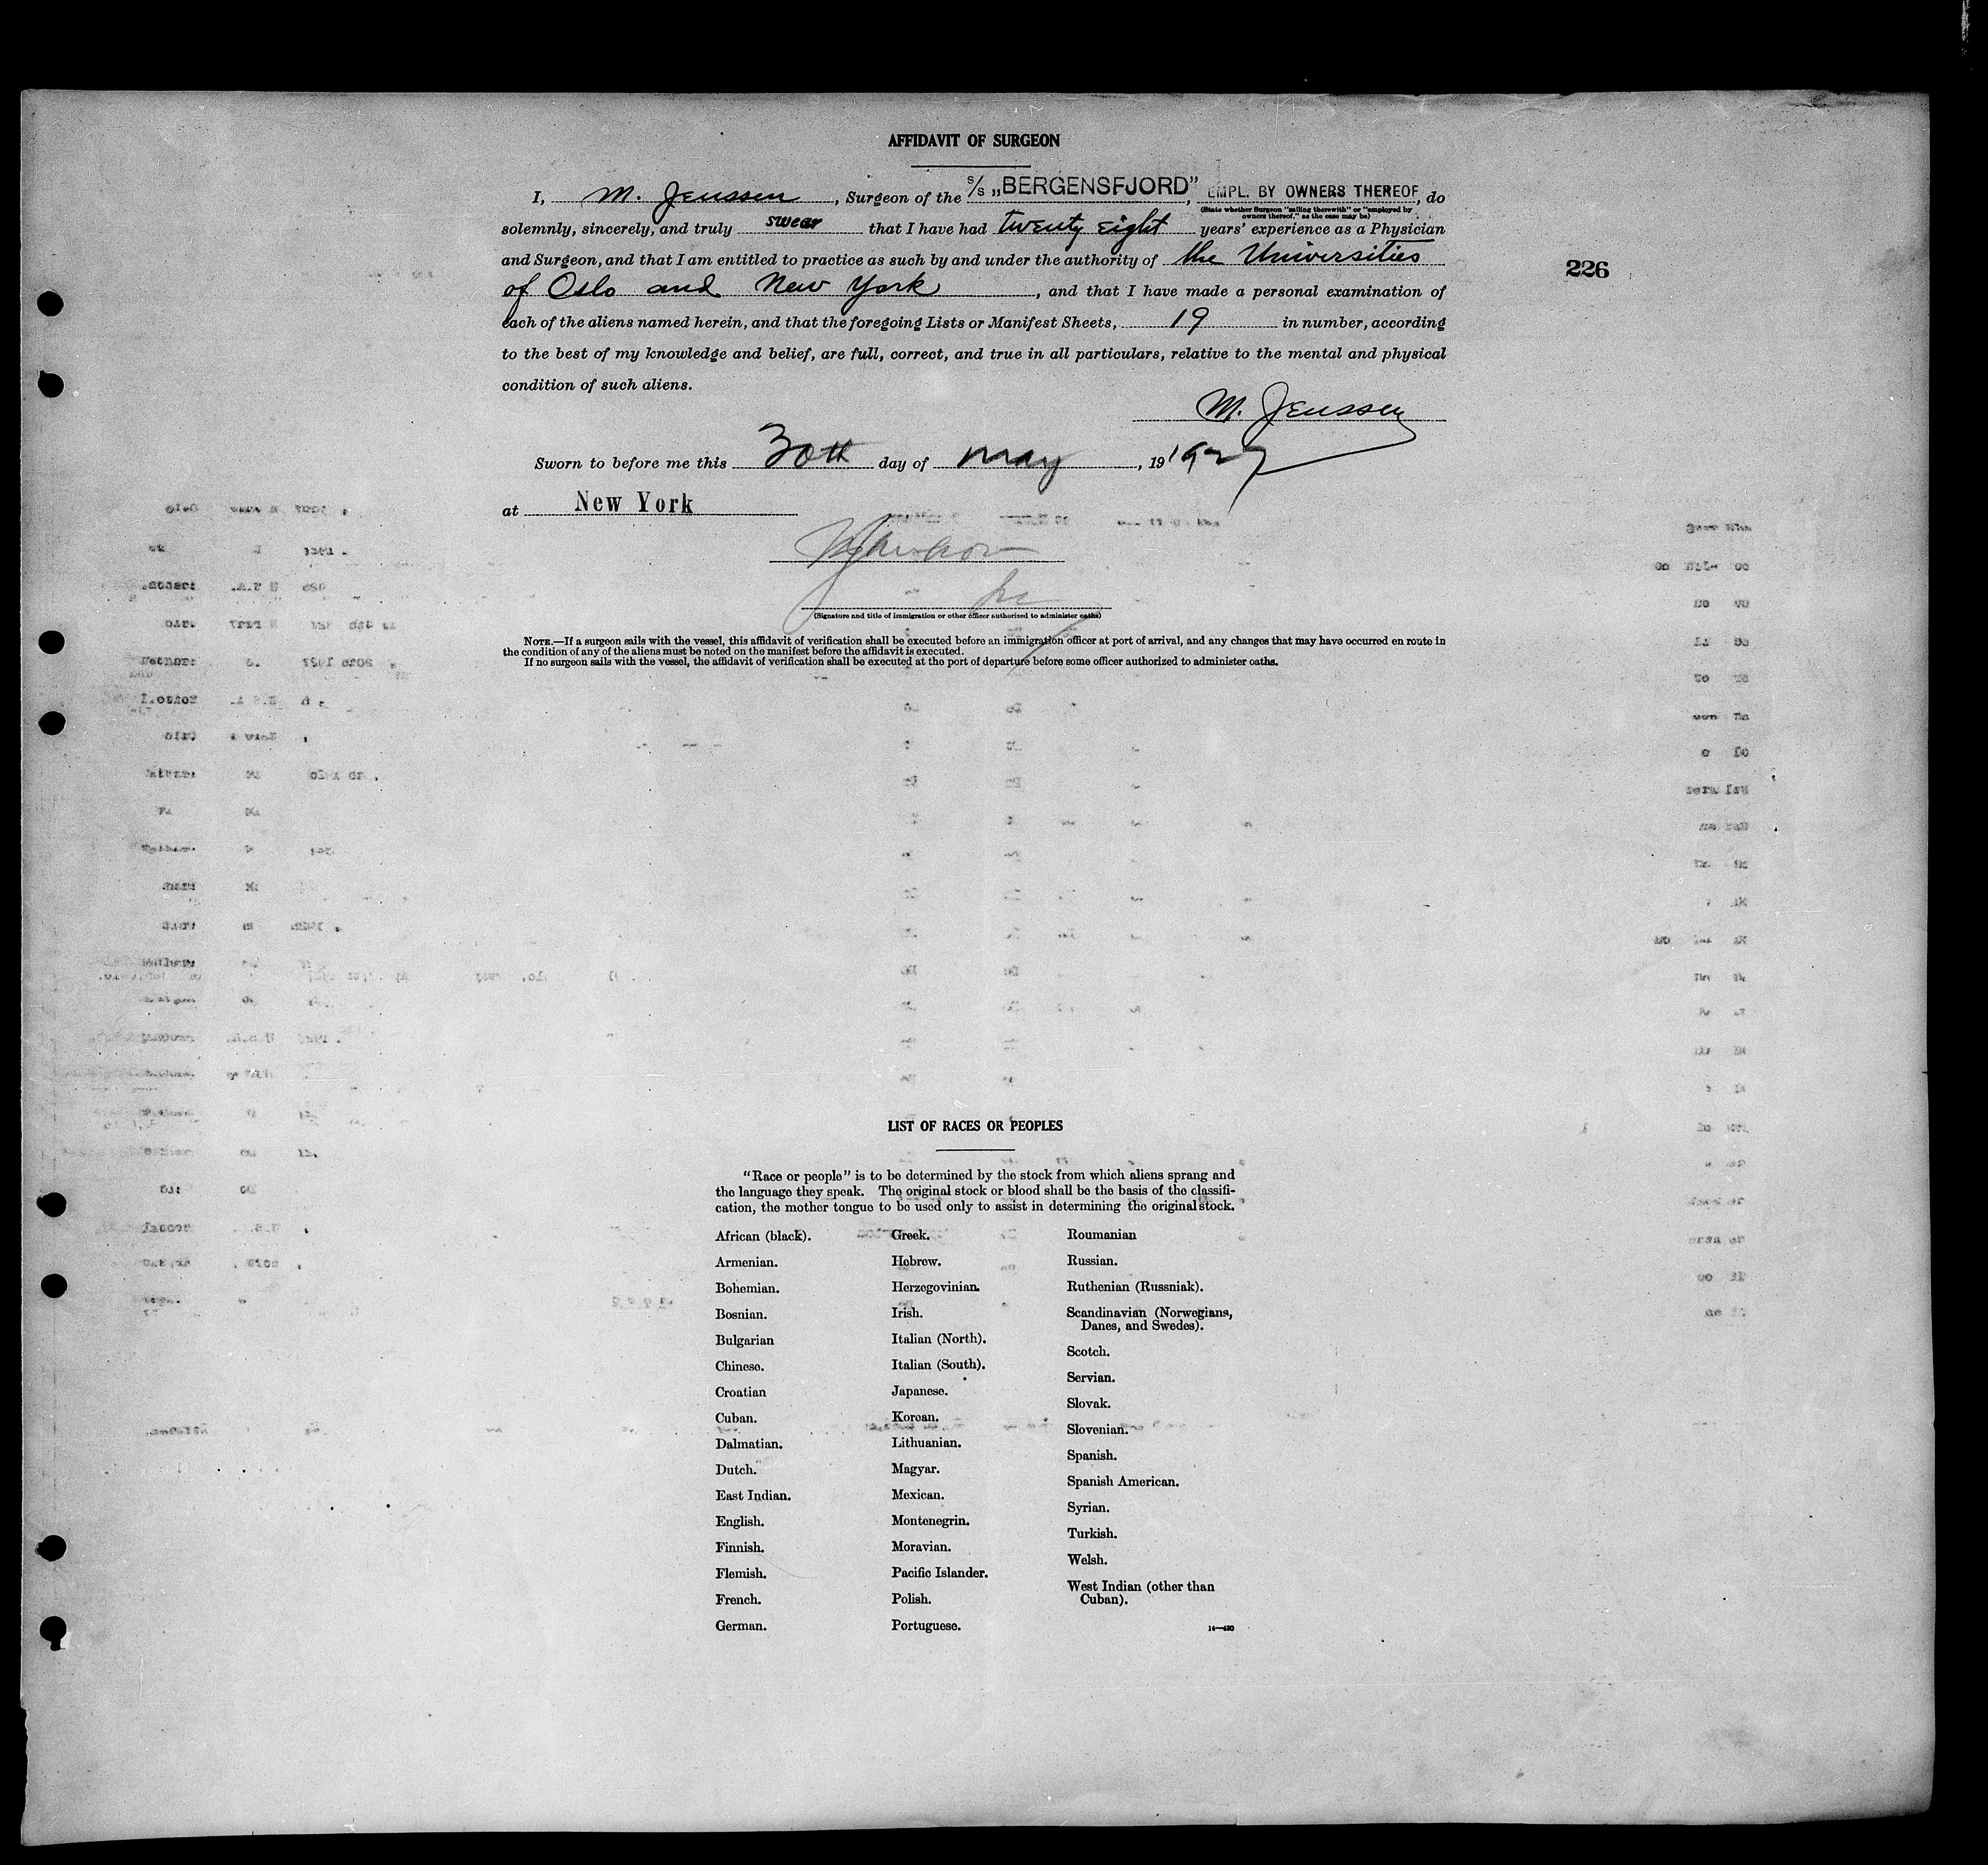 AFFIDAVIT OF SURGEON
I, M. Jenssen, Surgeon of the S/S „BERGENSFJORD”, EMPL. BY OWNERS THEREOF, do
(State whether Surgeon "sailing therewith" or "employed by owners thereof," as the case may be)
solemnly, sincerely, and truly swear that I have had twenty eight years' experience as a Physician
and Surgeon, and that I am entitled to practice as such by and under the authority of the Universities
226
of Oslo and New York, and that I have made a personal examination of
each of the aliens named herein, and that the foregoing Lists or Manifest Sheets, 19 in number, according
to the best of my knowledge and belief, are full, correct, and true in all particulars, relative to the mental and physical
condition of such aliens.
M. Jenssen
Sworn to before me this 30th day of May, 19 1927
at New York
(Signature and title of immigration or other officer authorized to administer oaths)
NOTE.—If a surgeon sails with the vessel, this affidavit of verification shall be executed before an immigration officer at port of arrival, and any changes that may have occurred en route in
the condition of any of the aliens must be noted on the manifest before the affidavit is executed.
If no surgeon sails with the vessel, the affidavit of verification shall be executed at the port of departure before some officer authorized to administer oaths.
LIST OF RACES OR PEOPLES
"Race or people" is to be determined by the stock from which aliens sprang and
the language they speak. The original stock or blood shall be the basis of the classifi-
cation, the mother tongue to be used only to assist in determining the original stock.
African (black).
Armenian.
Bohemian.
Bosnian.
Bulgarian
Chinese.
Croatian
Cuban.
Dalmatian.
Dutch.
East Indian.
English.
Finnish.
Flemish.
French.
German.
Greek.
Hebrew.
Herzegovinian.
Irish.
Italian (North).
Italian (South).
Japanese.
Korean.
Lithuanian.
Magyar.
Mexican.
Montenegrin.
Moravian.
Pacific Islander.
Polish.
Portuguese.
Roumanian
Russian.
Ruthenian (Russniak).
Scandinavian (Norwegians,
Danes, and Swedes).
Scotch.
Servian.
Slovak.
Slovenian.
Spanish.
Spanish American.
Syrian.
Turkish.
Welsh.
West Indian (other than
Cuban).
14—430